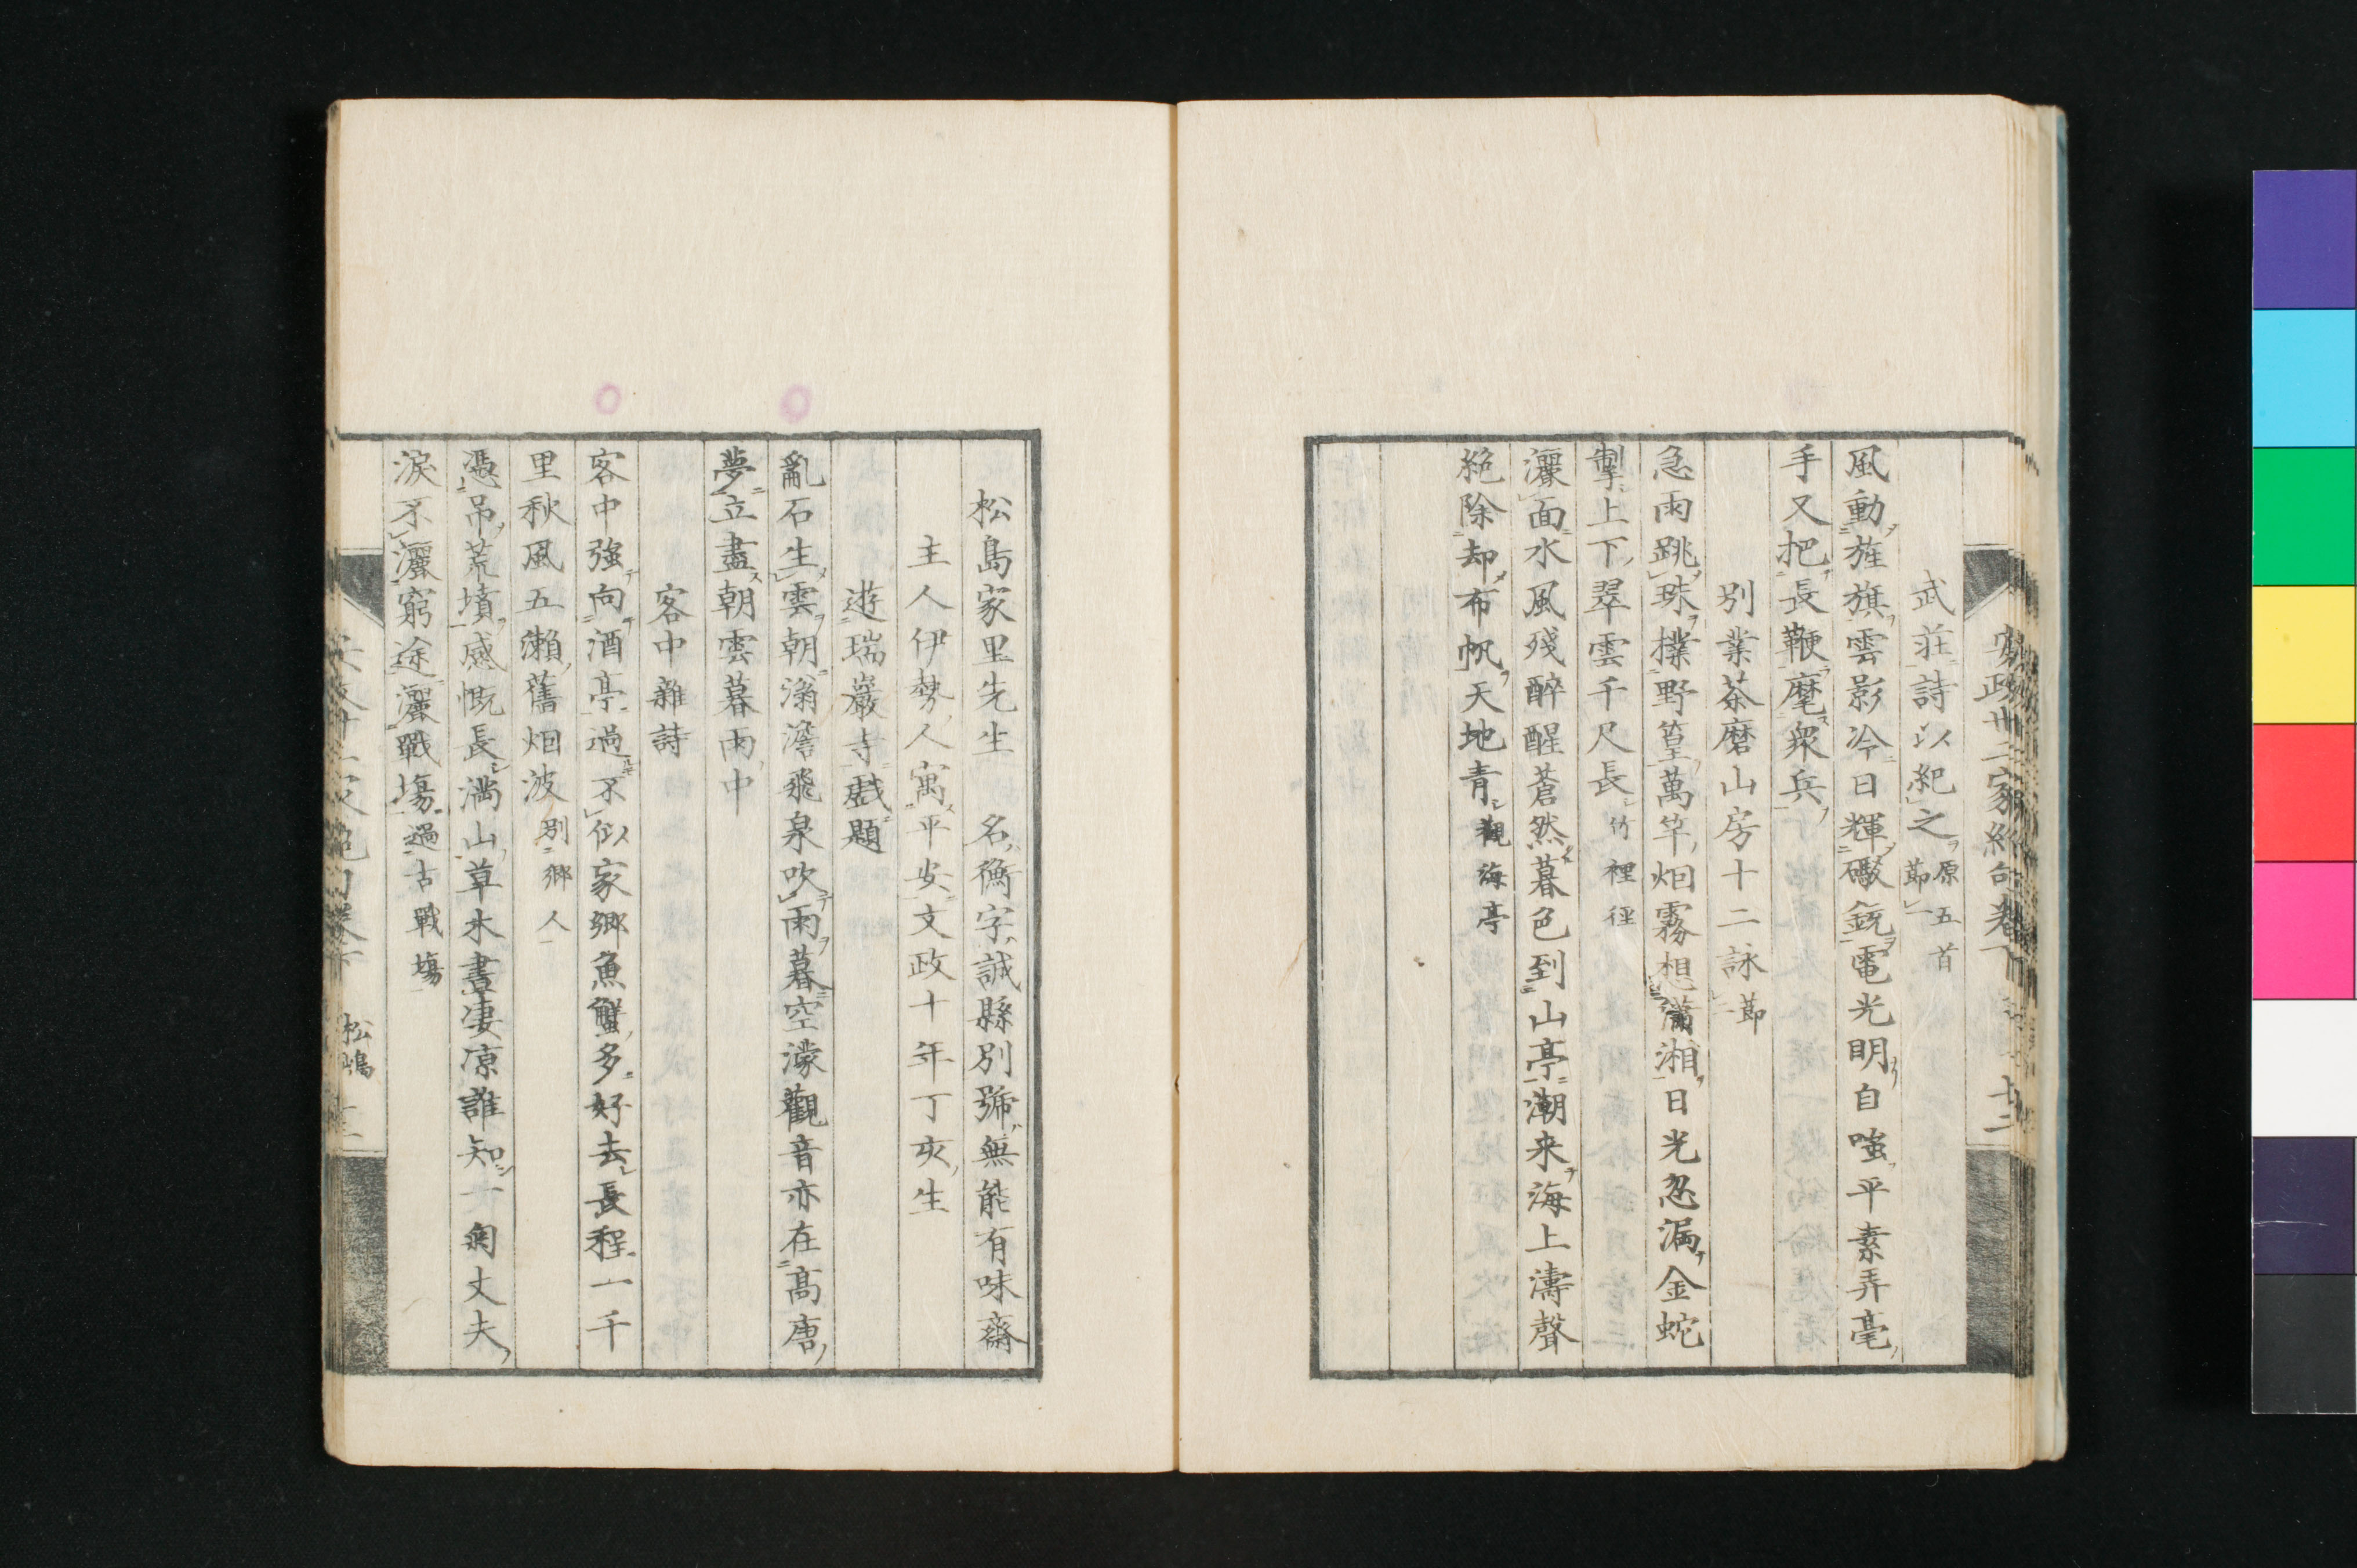 武莊詩以紀之 原五首節一
風動旌旗雲影冷日輝礮銃電光明自嗤平素弄毫
手又把長鞭麾衆兵
別業茶磨山房十二詠節一
急雨跳珠撲野篁萬竿烟霧想瀟湘日光忽漏金蛇
掣上下翠雲千尺長 竹裡径
灑面水風殘醉醒蒼然暮色到山亭潮来海上濤聲
絶除却布帆天地青 観海亭
安政卅二家絶句卷下 十二
松島家里先生 名衡字誠縣別號無能有味齋
主人伊勢人寓平安文政十年丁亥生
遊瑞巖寺戲題
亂石生雲朝滃澹飛泉吹雨暮空濛觀音亦在高唐
夢立盡朝雲暮雨中
客中雜詩
客中強向酒亭過不似家鄉魚蟹多好去長程一千
里秋風五瀨舊烟波 別鄉人
憑吊荒墳感慨長満山草木盡凄凉誰知一匊丈夫
淚不灑窮途灑戰場 過古戰場
松嶋